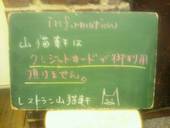 information
山猫軒は
クレジットカードが御利用
頂けません。
レストラン山猫軒